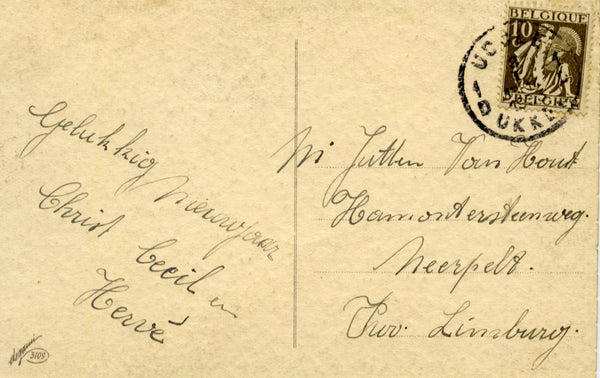 BELGIQUE
10
BELGIË
UCCLE 1
UKKEL
Gelukkig
Nieuwjaar
Christ Cecil en
Hervé
Jutten Van Hout
Hamontersteenweg.
Neerpelt.
Prov. Limburg.
3109